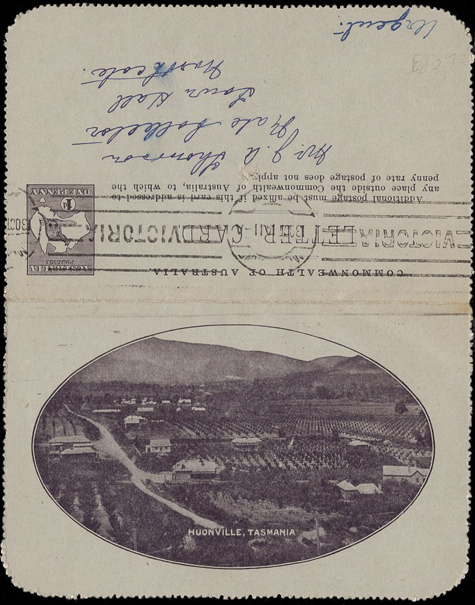 COMMONWEALTH OF AUSTRALIA.
LETTER CARD
VICTORIA
VICTORIA
AUSTRALIA
POSTAGE
ONE PENNY
1d
Additional postage must be affixed if this card is addressed to
any place outside the Commonwealth of Australia, to which the
penny rate of postage does not apply.
Mr. J. A. Thomson
Rate Collector
Town Hall
Northcote.
Urgent.
HUONVILLE, TASMANIA